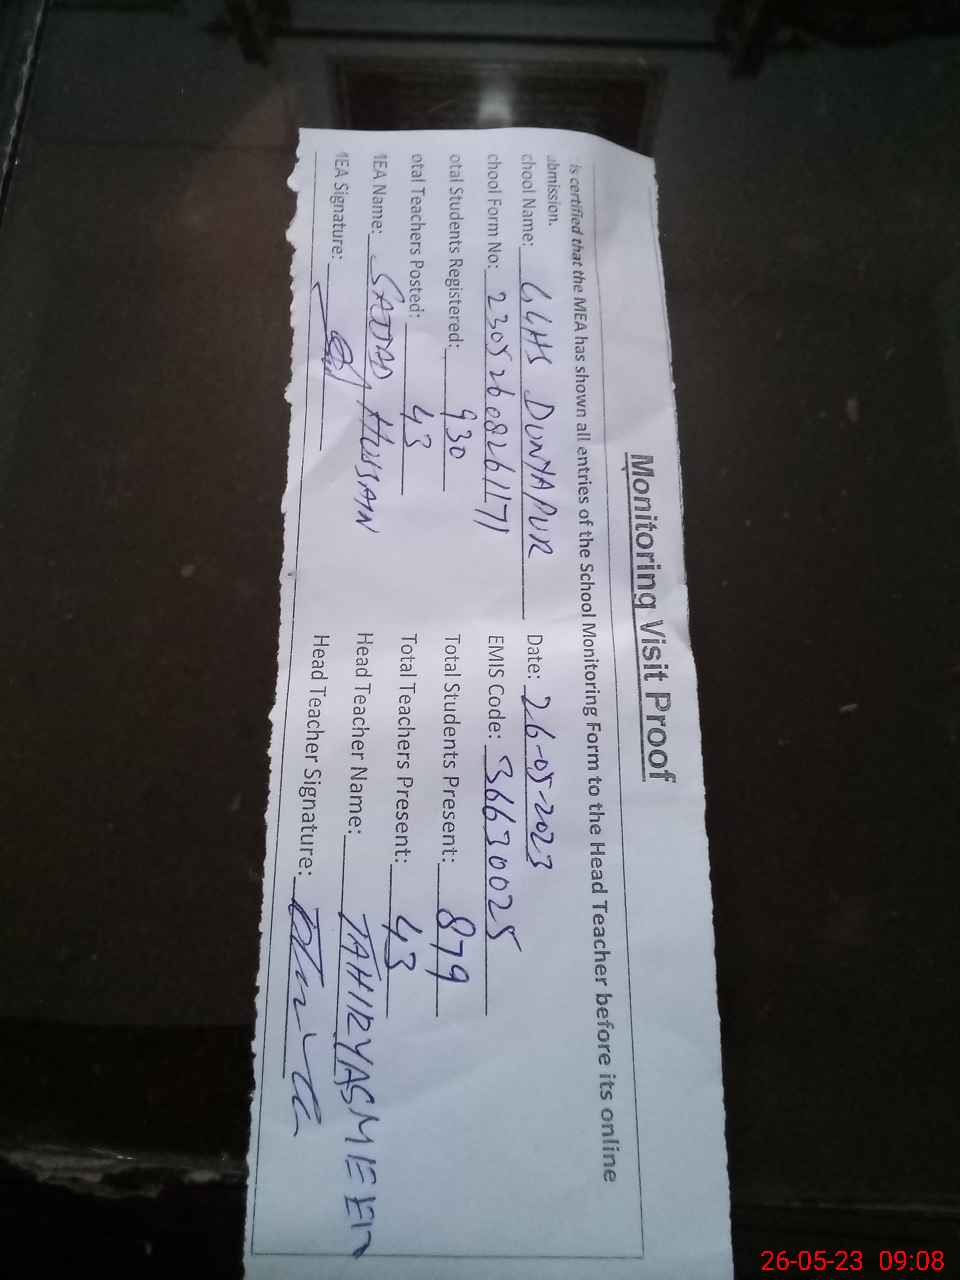 Monitoring Visit Proof
is certified that the MEA has shown all entries of the School Monitoring Form to the Head Teacher before its online
ubmission.
chool Name: GGHS DUNYAPUR Date: 26-05-2023
chool Form No: 23052608261171 EMIS Code: 36630025
otal Students Registered: 930 Total Students Present: 879
otal Teachers Posted: 43 Total Teachers Present: 43
MEA Name: SAJJAD HUSSAIN Head Teacher Name: TAHIRYASMEEN
MEA Signature: Head Teacher Signature:
26-05-23 09:08